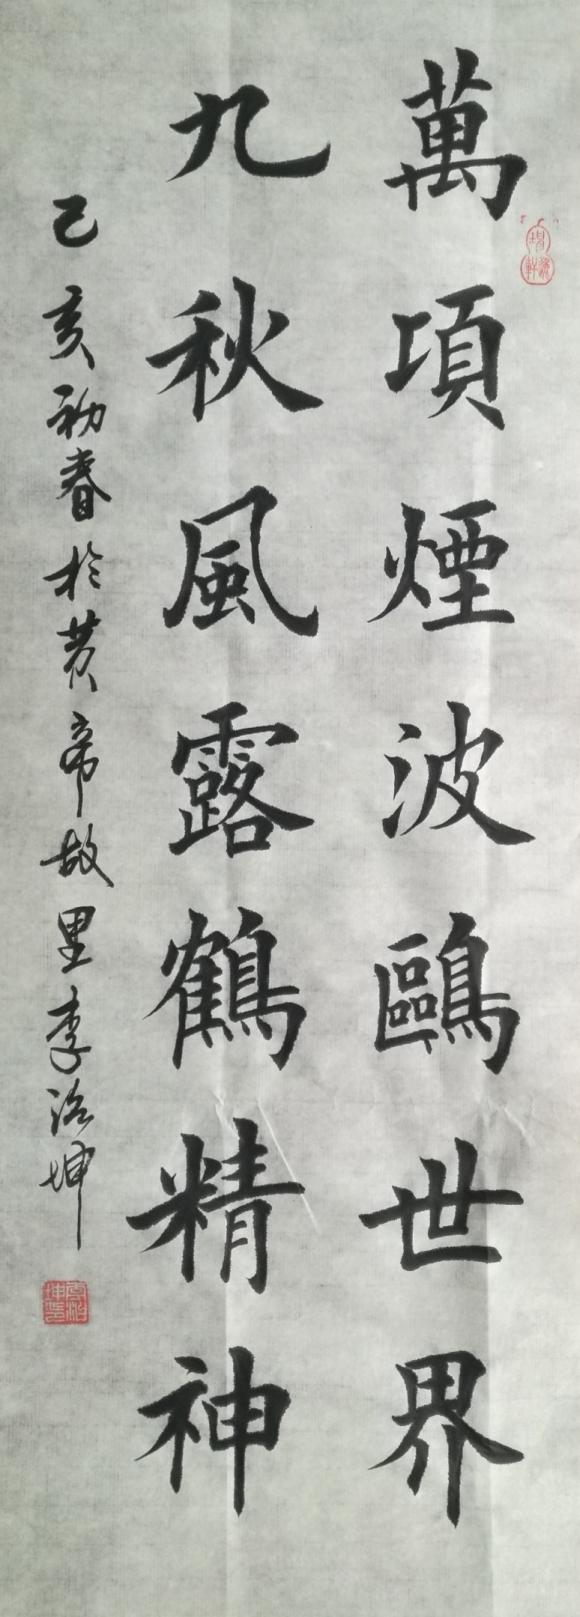 萬項煙波鷗世界
九秋風露鶴精神
己亥初春於黄帝故里李治坤